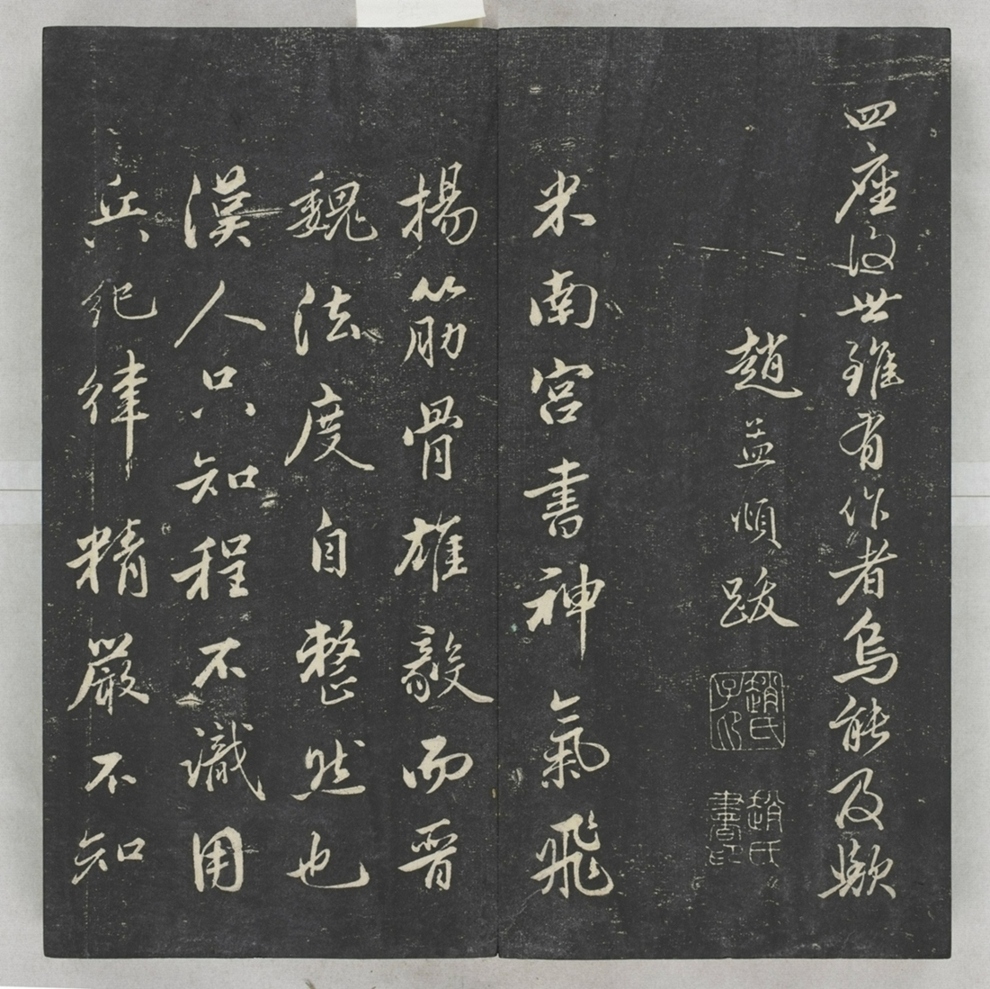 四座後世雖有作者烏能及歟
趙孟頫跋
趙氏子昂
趙氏書印
米南宮書神氣飛
揚筋骨雄毅而晉
魏法度自整然也
漢人只知程不識用
兵紀律精嚴不知